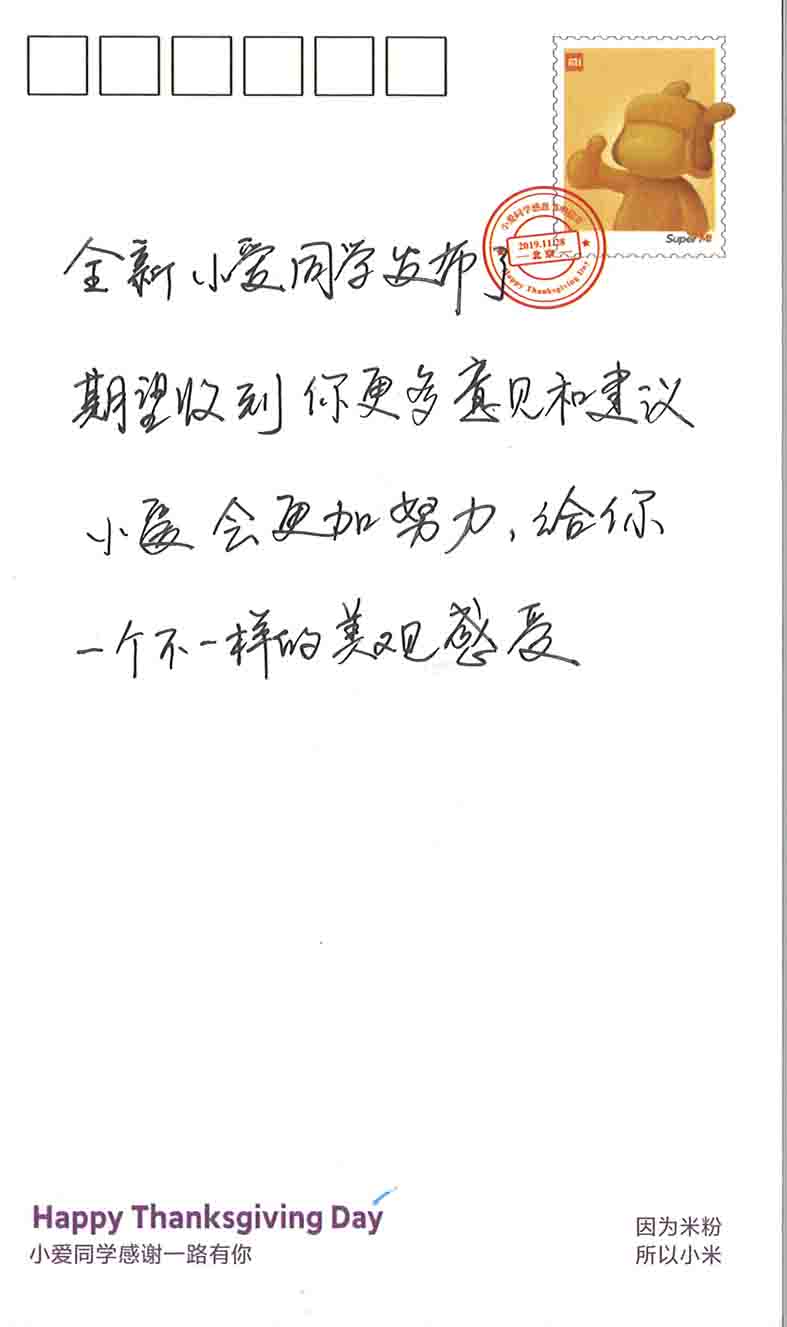 MI
Super MI
2019.11.28
北京
Happy Thanksgiving Day
全新小爱同学发布了
期望收到你更多意见和建议
小爱会更加努力,给你
一个不一样的美观感受
Happy Thanksgiving Day
小爱同学感谢一路有你
因为米粉
所以小米